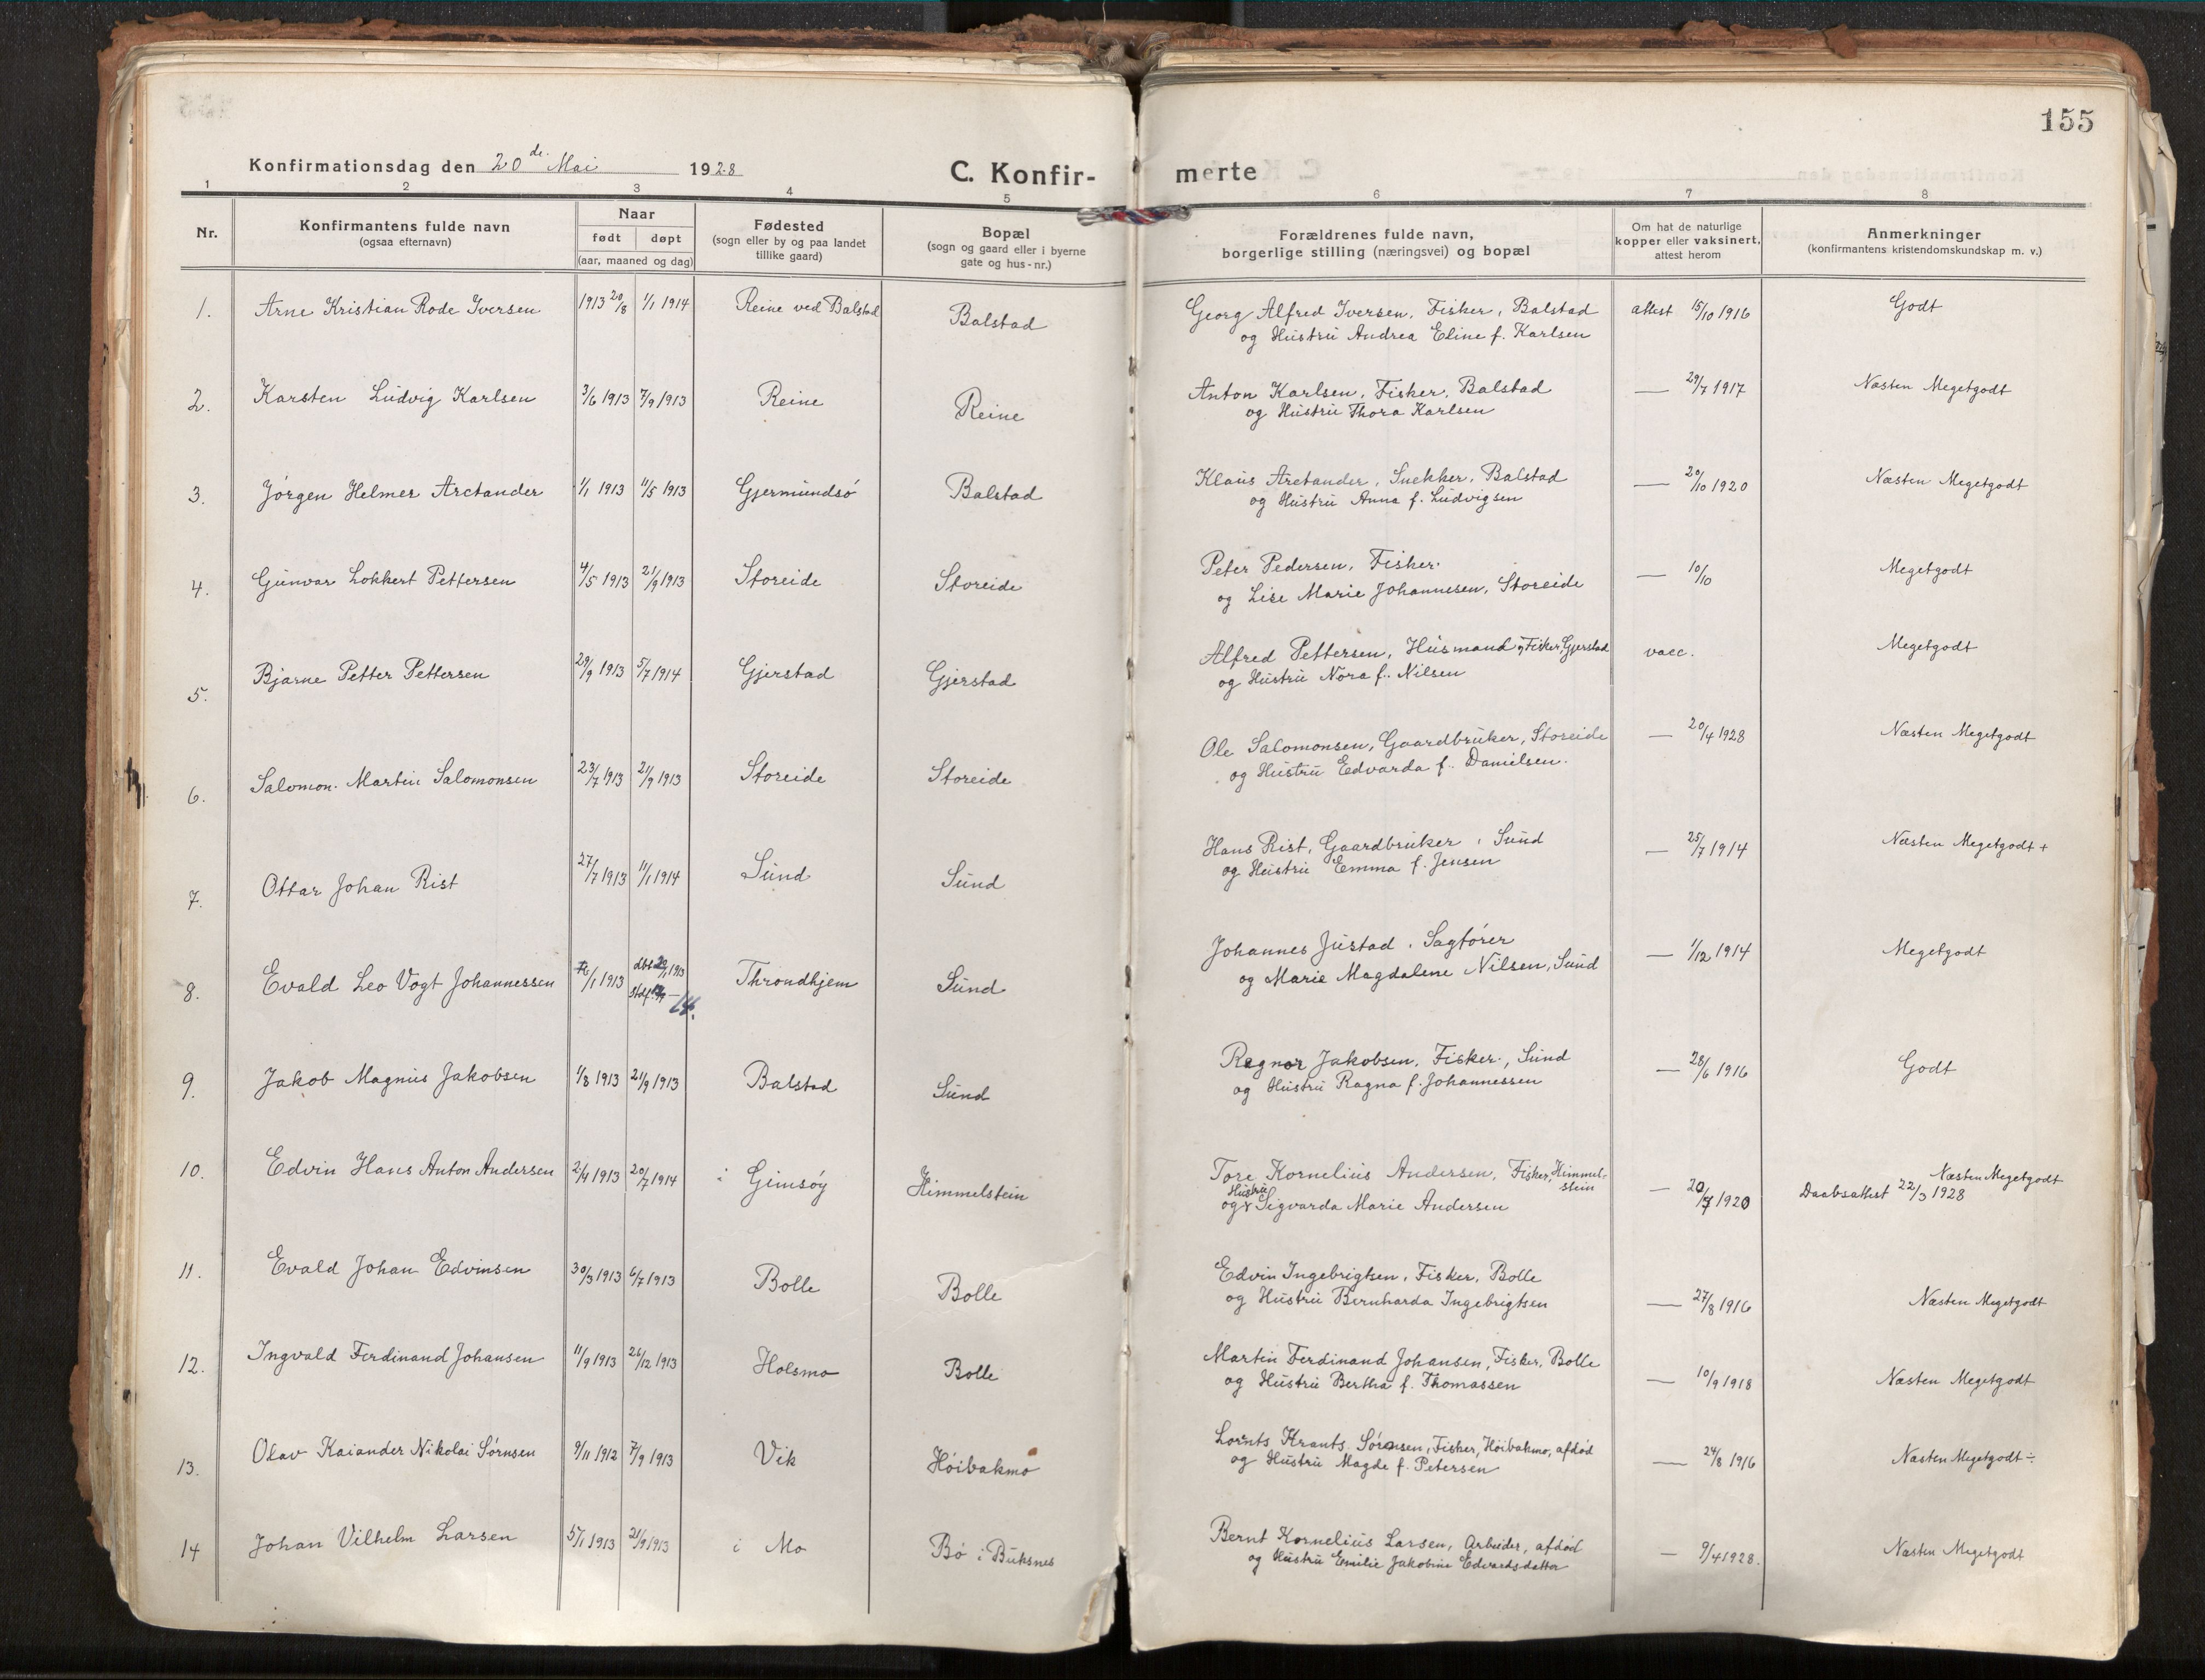 155
Konfirmationsdag den 20de Mai 1928
C. Konfir-
merte
1 2 3 4 5 6 7 8
Nr.
Konfirmantens fulde navn
(ogsaa efternavn)
Naar
født døpt
(aar, maaned og dag)
Fødested
(sogn eller by og paa landet
tillike gaard)
Bopæl
(sogn og gaard eller i byerne
gate og hus-nr.)
Forældrenes fulde navn,
borgerlige stilling (næringsvei) og bopæl
Om hat de naturlige
kopper eller vaksinert,
attest herom
Anmerkninger
(konfirmantens kristendomskundskap m. v.)
1. Arne Kristian Rode Iversen 1913 20/8 1/1 1914 Reine ved Balstad Balstad Georg Alfred Iversen, Fisker, Balstad attest 15/10 1916 Godt
og Hustru Andrea Eline f. Karlsen
2. Karsten Ludvig Karlsen 3/6 1913 7/9 1913 Reine Reine Anton Karlsen, Fisker, Balstad — 29/7 1917 Næsten Megetgodt
og Hustru Thora Karlsen
3. Jörgen Helmer Arctander 1/1 1913 11/5 1913 Gjermundsö Balstad Klaus Arctander, Snekker, Balstad — 20/10 1920 Næsten Megetgodt
og Hustru Anna f. Ludvigsen
4. Gunvar Lokkert Pettersen 4/5 1913 21/9 1913 Storeide Storeide Peter Pedersen, Fisker. — 10/10 Megetgodt
og Lise Marie Johannesen, Storeide
5. Bjarne Petter Pettersen 29/9 1913 5/7 1914 Gjerstad Gjerstad Alfred Pettersen, Husmand og Fisker, Gjerstad vacc. Megetgodt
og Hustru Nora f. Nilsen
6. Salomon Martin Salomonsen 23/7 1913 21/9 1913 Storeide Storeide Ole Salomonsen, Gaardbruker, Storeide — 20/4 1928 Næsten Megetgodt
og Hustru Edvarda f. Danielsen.
7. Ottar Johan Rist 27/7 1913 11/1 1914 Sund Sund Hans Rist, Gaardbruker, Sund — 25/7 1914 Næsten Megetgodt +
og Hustru Emma f. Jensen
8. Evald Leo Vogt Johannessen /1 1913 14. Throndhjem Sund Johannes Justad, Sagförer — 1/12 1914 Megetgodt
og Marie Magdalene Nilsen, Sund
9. Jakob Magnus Jakobsen 1/8 1913 21/9 1913 Balstad Sund Ragnar Jakobsen, Fisker, Sund — 28/6 1916 Godt
og Hustru Ragna f. Johannessen
10. Edvin Hans Anton Andersen 2/4 1913 20/7 1914 i Gimsöy Himmelstein Tore Kornelius Andersen, Fisker, Himmel- Næsten Megetgodt
stein
og Hustru Sigvarda Marie Andersen — 20/7 1920 Daabsattest 22/3 1928
11. Evald Johan Edvinsen 30/3 1913 6/7 1913 Bolle Bolle Edvin Ingebrigtsen, Fisker, Bolle
og Hustru Bernharda Ingebrigtsen — 27/8 1916 Næsten Megetgodt
12. Ingvald Ferdinand Johansen 11/9 1913 26/12 1913 Holsmo Bolle Martin Ferdinand Johansen, Fisker, Bolle
og Hustru Bertha f. Thomassen — 10/9 1918 Næsten Megetgodt
13. Olav Kaiander Nikolai Sörnsen 9/11 1912 7/9 1913 Vik Höibakmo Lornts Krants Sörensen, Fisker, Höibakmo, afdöd
og Hustru Magde f. Petersen — 24/8 1916 Næsten Megetgodt ÷
14 Johan Vilhelm Larsen 5/1 1913 21/9 1913 i Mo Bö i Buksnes Bernt Kornelius Larsen, Arbeider, afdöd
og Hustru Emilie Jakobine Edvardsdatter — 9/4 1928. Næsten Megetgodt